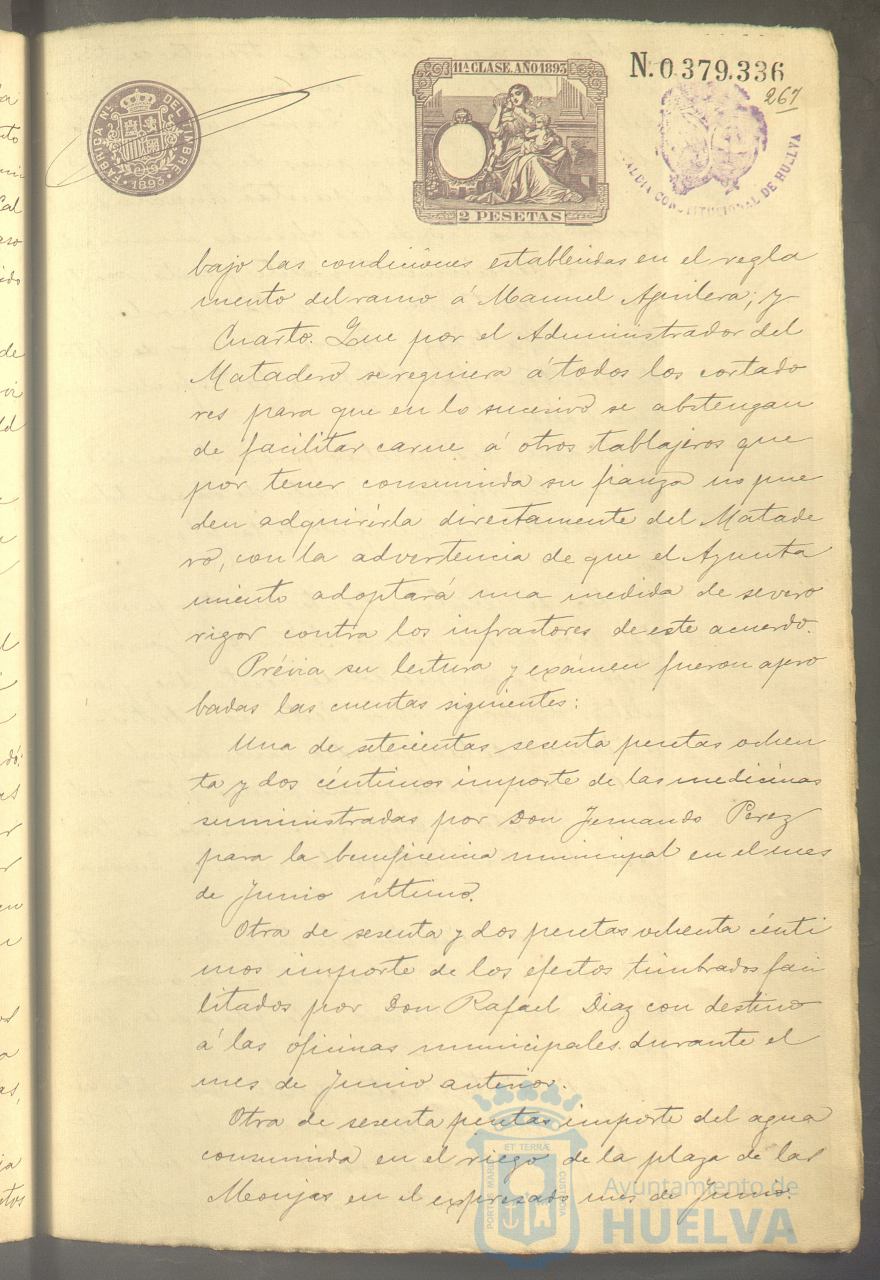 11ª CLASE. AÑO 1893
N. 0.379.336
267
FABRICA Nᴸ. DEL TIMBRE
1893
2 PESETAS
CONSTITUCIONAL DE HUELVA
bajo las condiciones establecidas en el regla
mento del ramo á Manuel Aguilera; y
Cuarto. Que por el Administrador del
Matadero se requiera á todos los cortado
res para que en lo sucesivo se abstengan
de facilitar carne á otros tablajeros que
por tener consumida su fianza no pue
den adquirirla directamente del Matade
ro, con la advertencia de que el Ayunta
miento adoptará una medida de severo
rigor contra los infractores de este acuerdo.
Prévia su lectura y exámen fueron apro
badas las cuentas siguientes:
Una de setecientas sesenta pesetas ochen
ta y dos céntimos importe de las medicinas
suministradas por Don Fernando Perez
para la beneficencia municipal en el mes
de Junio último.
Otra de sesenta y dos pesetas ochenta cénti
mos importe de los efectos timbrados faci
litados por Don Rafael Diaz con destino
á las oficinas municipales durante el
mes de Junio anterior.
Otra de sesenta pesetas importe del agua
consumida en el riego de la plaza de las
Monjas en el expresado mes de Junio.
PORTUS MARIS ET TERRÆ CUSTODIA
Ayuntamiento de
HUELVA